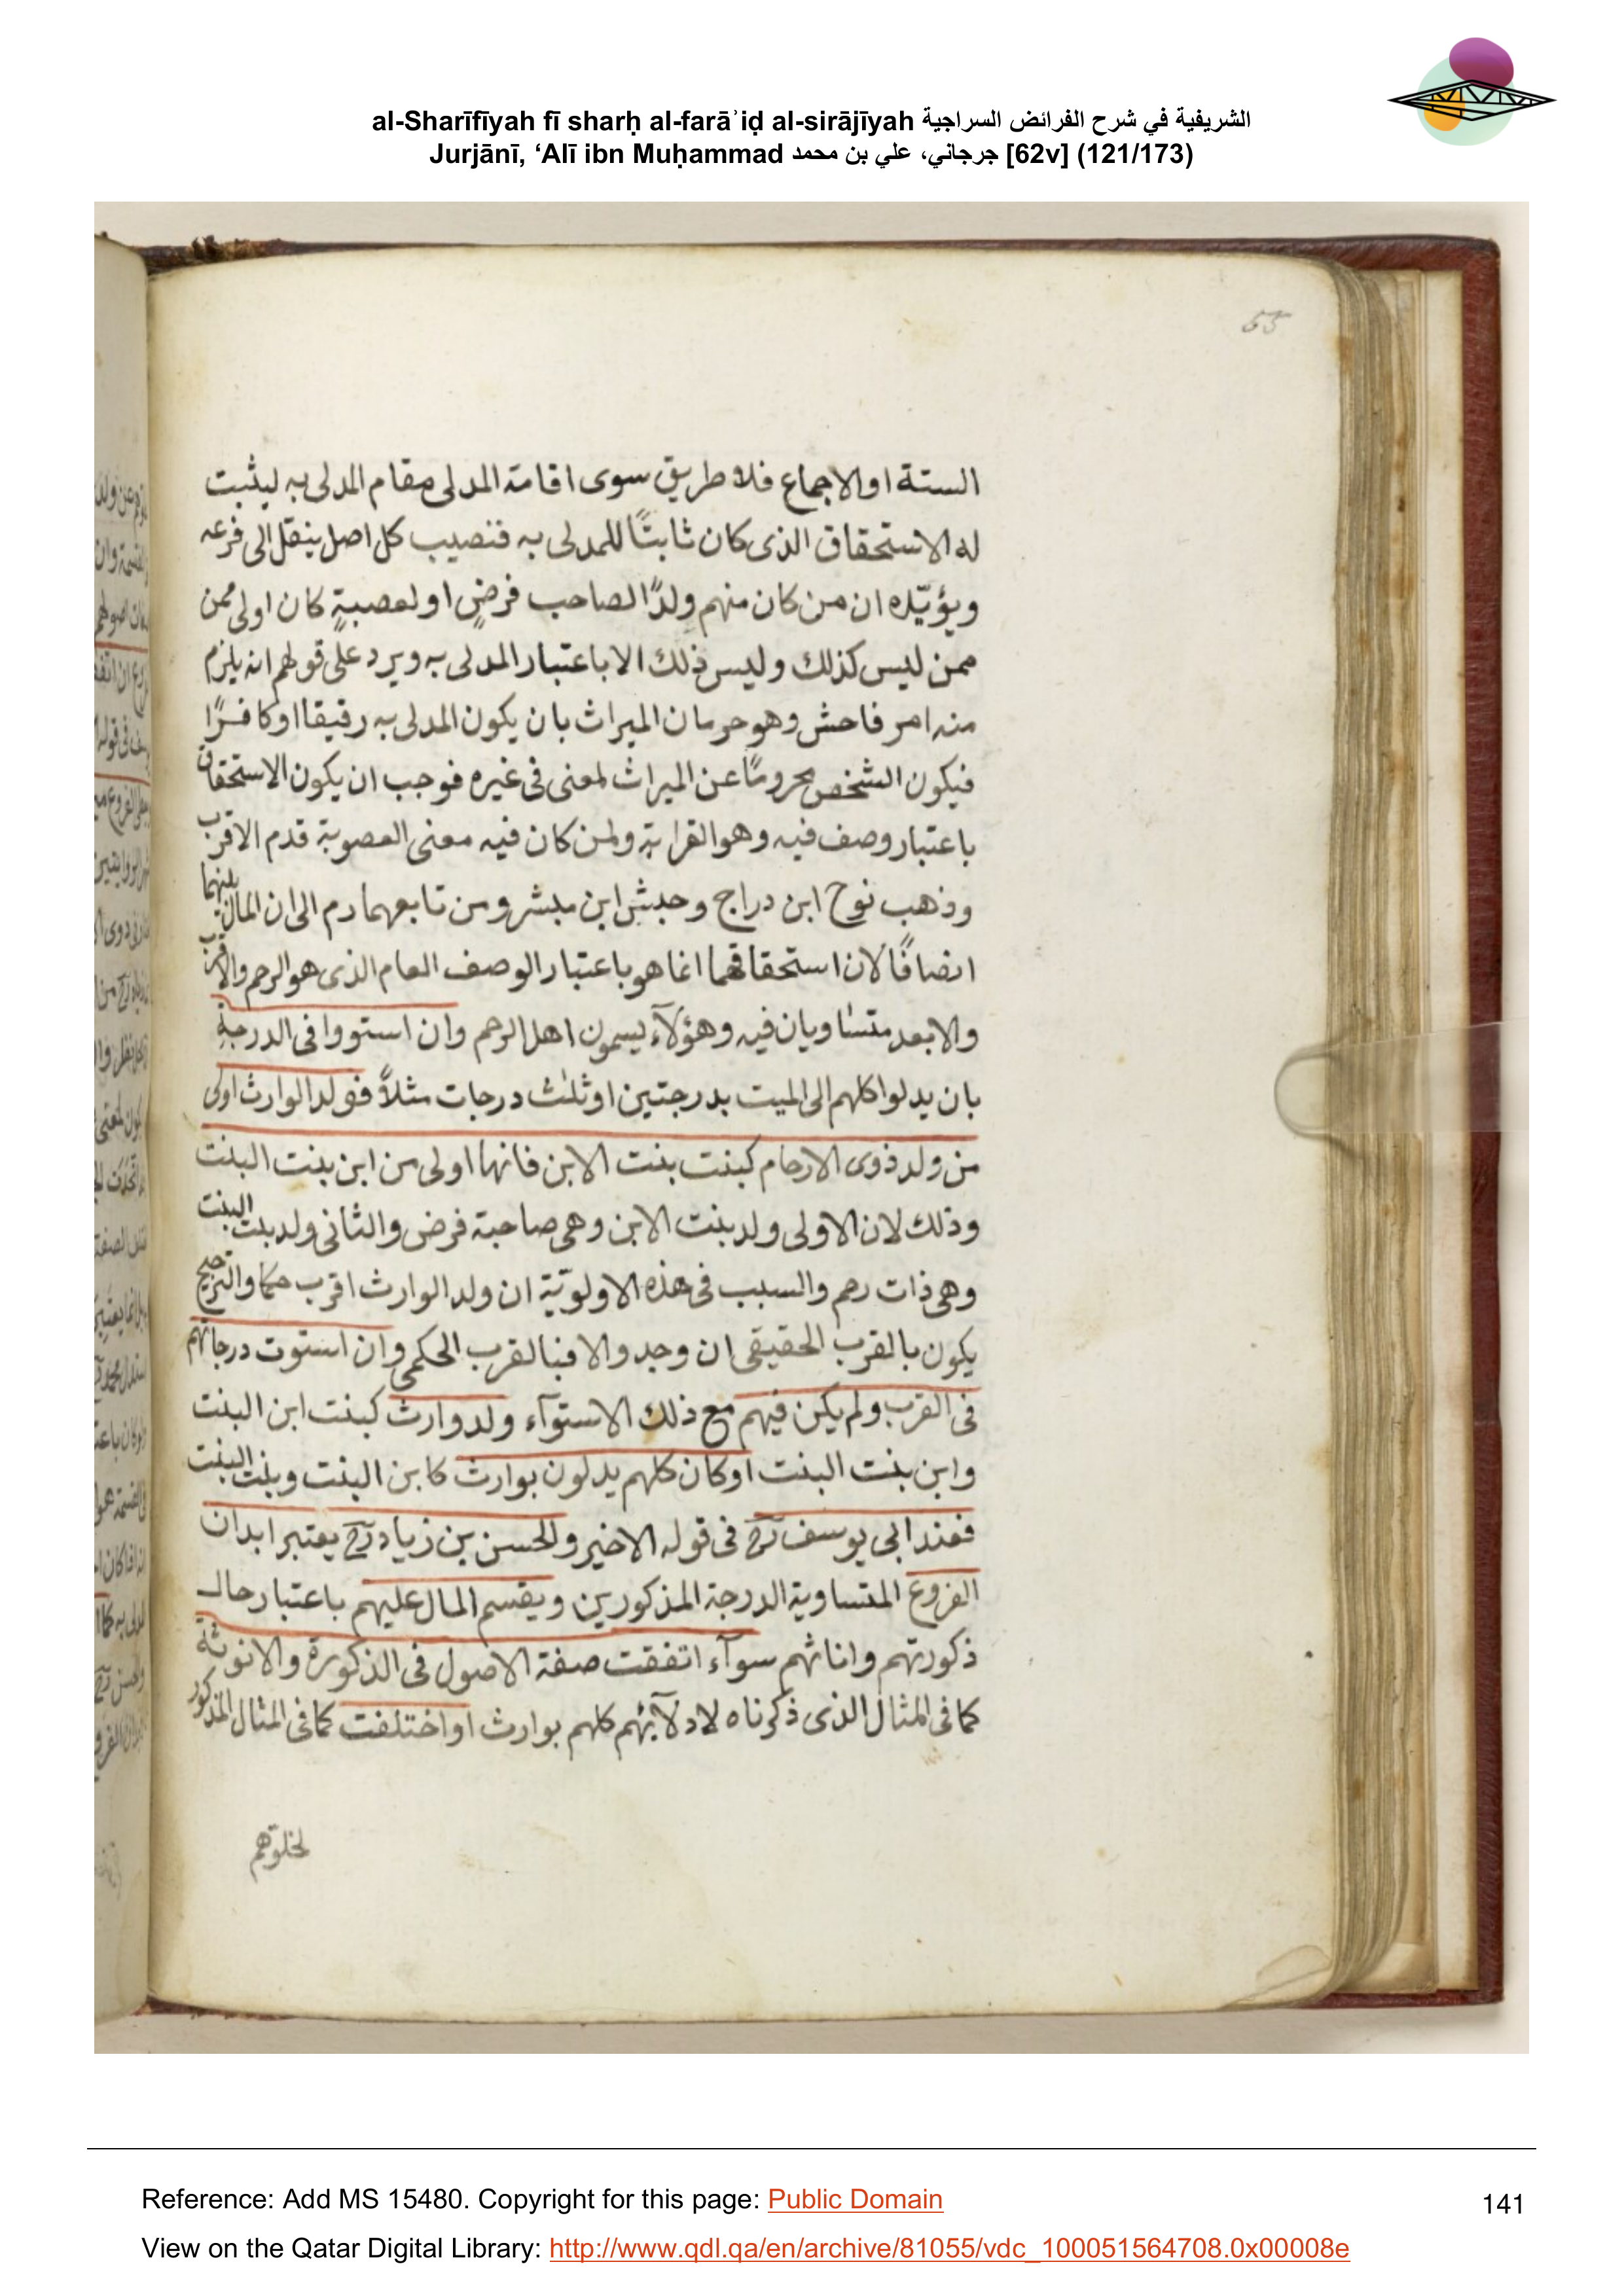 al-Sharīfīyah fī sharḥ al-farāʾiḍ al-sirājīyah الشريفية في شرح الفرائض السراجية
Jurjānī, ‘Alī ibn Muḥammad جرجاني، علي بن محمد [62v] (121/173)
55
الستة او الاجماع فلا طريق سوى اقامة المدلى مقام المدلى به ليثبت
له الاستحقاق الذى كان ثابتًا للمدلى به فنصيب كل اصل ينقل الى فرعه
ويؤيّده ان من كان منهم ولدًا لصاحب فرضٍ او لعصبةٍ كان اولى ممن
ممن ليس كذلك وليس ذلك الا باعتبار المدلى به ويرد على قولهم انه يلزم
منه امر فاحش وهو حرمان الميراث بان يكون المدلى به رقيقا او كافرًا
فيكون الشخص محرومًا عن الميراث لمعنى فى غيره فوجب ان يكون الاستحقاق
باعتبار وصف فيه وهو القرابة ولمن كان فيه معنى العصوبة قدم الاقرب
وذهب نوح ابن دراج وحبش ابن مبشر ومن تابعهما رم الى ان المال بينهما
انصافًا لان استحقاقهما انما هو باعتبار الوصف العام الذى هو الرحم والاقرب
والابعد متساويان فيه وهؤلآء يسمون اهل الرحم وان استووا فى الدرجةِ
بان يدلوا كلهم الى الميت بدرجتين او ثلٰث درجات مثلاً فولد الوارث اولى
من ولد ذوى الارحام كبنت بنت الابن فانها اولى من ابن بنت البنت
وذلك لان الاولى ولد بنت الابن وهى صاحبة فرض والثانى ولد بنت البنت
وهى ذات رحم والسبب فى هذه الاولويّة ان ولد الوارث اقرب حكما والترجيح
يكون بالقرب الحقيقى ان وجد والا فبالقرب الحكمى وان استوت درجاتهم
فى القرب ولم يكن فيهم مع ذلك الاستوآء ولد وارث كبنت ابن البنت
وابن بنت البنت او كان كلهم يدلون بوارث كابن البنت وبنت البنت
فعند ابى يوسف رح فى قوله الاخير والحسن بن زياد رح يعتبر ابدان
الفروع المتساوية الدرجة المذكورين ويقسم المال عليهم باعتبار حال
ذكورتهم واناثهم سوآء اتفقت صفة الاصول فى الذكورة والانوثة
كما فى المثال الذى ذكرناه لادلآئهم كلهم بوارث او اختلفت كما فى المثال المذكور
لخلوهم
Reference: Add MS 15480. Copyright for this page: Public Domain
141
View on the Qatar Digital Library: http://www.qdl.qa/en/archive/81055/vdc_100051564708.0x00008e